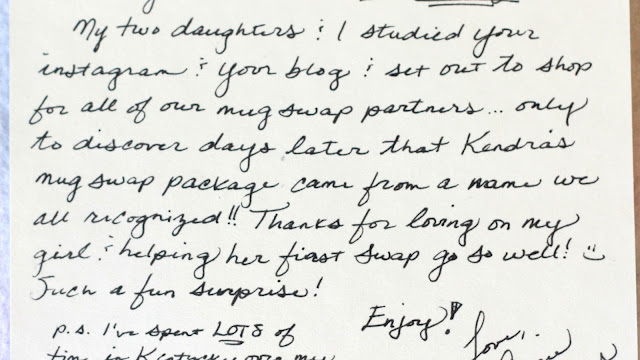 My two daughters & I studied your
instagram & your blog & set out to shop
for all of our mug swap partners... only
to discover days later that Kendra's
mug swap package came from a name we
all recognized!! Thanks for loving on my
girl & helping her first swap go so well! ☺
Such a fun surprise!
Enjoy!
love,
p.s. I've spent LOTS of
time in Kentucky over my